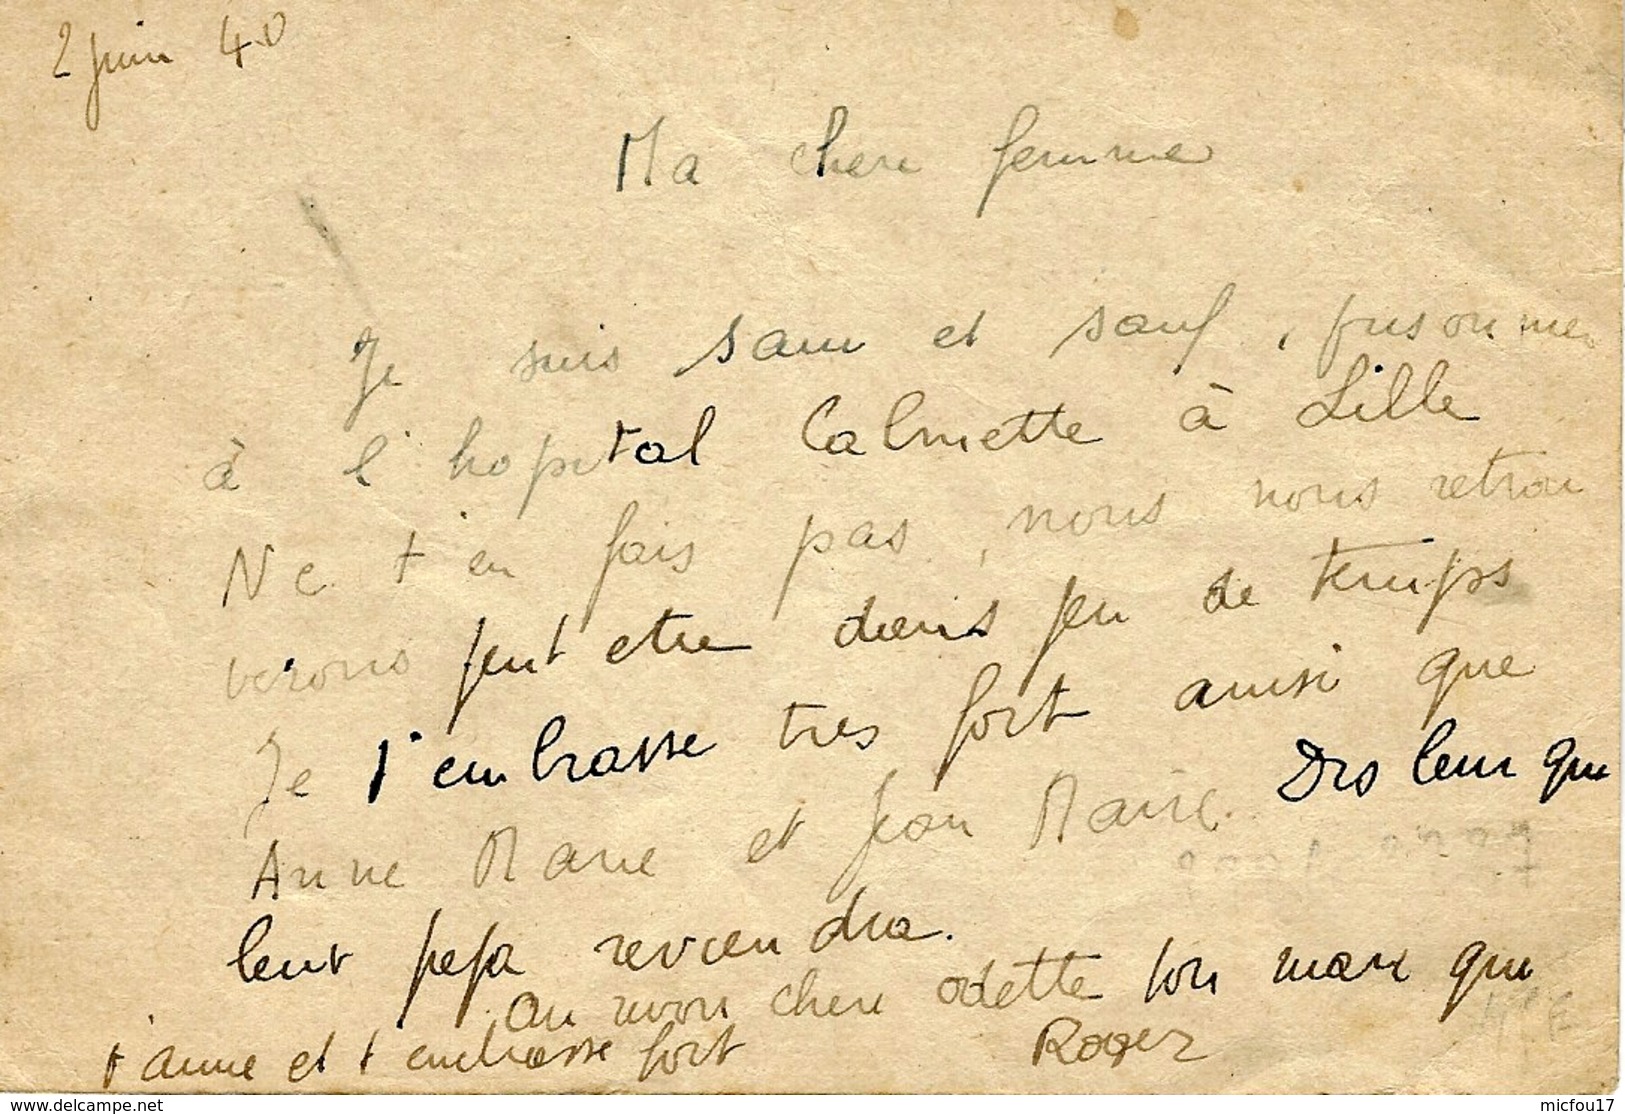 2 juin 40
Ma chere femme
Je suis sain et sauf, prisonnier
à l'hopital Calmette à Lille
Ne t'en fais pas, nous nous retrou
verons peut etre dans peu de temps
Je t'embrasse tres fort ainsi que
Anne Marie et Jean Marie. Dis leur que
leur papa reviendra.
au revoir chere odette ton mari qui
t'aime et t'embrasse fort Roger
www.delcampe.net micfou17